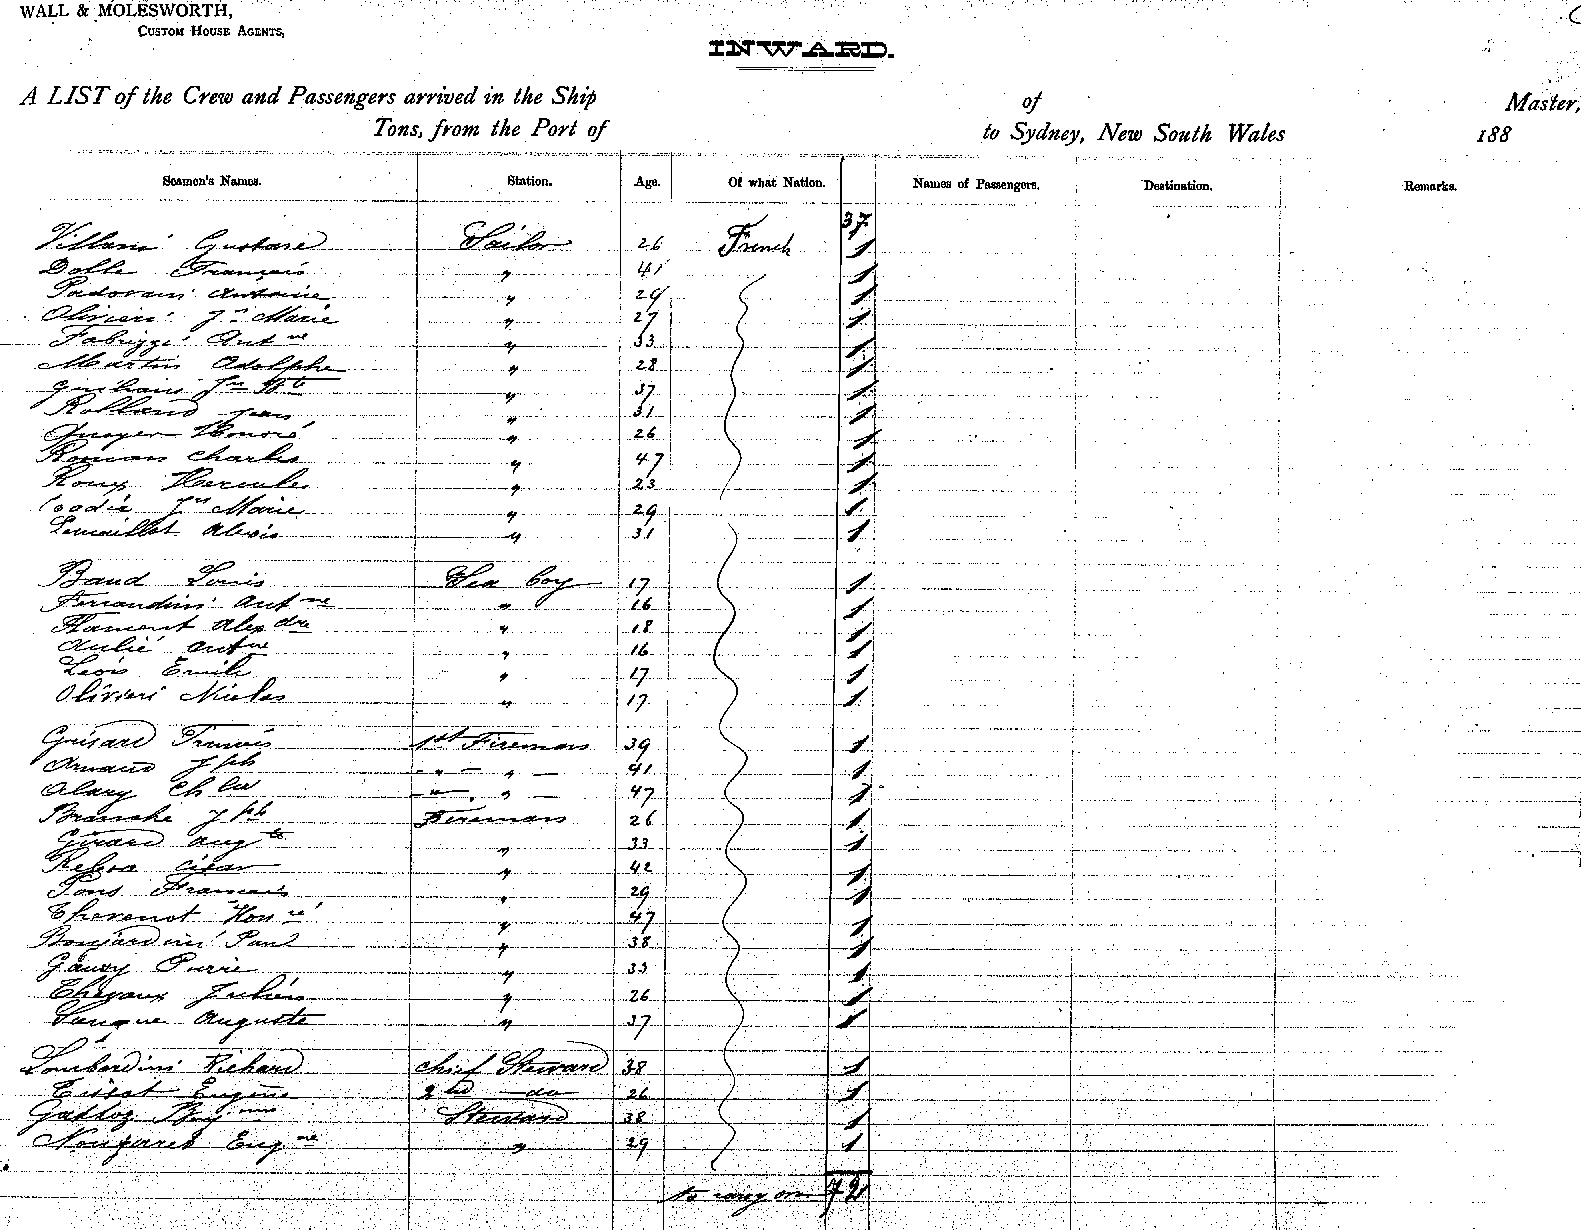 WALL & MOLESWORTH,
CUSTOM HOUSE AGENTS,
INWARD.
A LIST of the Crew and Passengers arrived in the Ship of Master,
Tons, from the Port of to Sydney, New South Wales 188
Seamen's Names. Station. Age. Of what Nation. Names of Passengers. Destination. Remarks.
37
Villani Gustave Sailor 26 French 1
Dolle François " 41 1
Padovani Antoine " 29 1
Olivieri Jn Marie " 27 1
Fabiggi Ant ne " 33 1
Martin Adolphe " 28 1
Giuliani Jn Bte " 37 1
Rolland Jean " 31 1
Honoré " 26 1
Roman Charles " 47 1
Roux Hercule " 23 1
Coadic Jn Marie " 29 1
Lemaillot Alexis " 31 1
Baud Louis Sea boy 17 1
Ferrandini Ant ne " 16 1
Flament Alex dre " 18 1
Aulié Ant ne " 16 1
Emile " 17 1
Olivieri Nicolas " 17 1
Grisard François 1st Fireman 39 1
Arnaud Jph " 41 1
Alary Ch les " 47 1
Branche Jph Fireman 26 1
Girard Aug te " 33 1
César " 42 1
Pons François " 29 1
Thevenot Hon ré " 47 1
Bonjardini Paul " 38 1
Gauzy Pierre " 33 1
Julien " 26 1
Auguste " 37 1
Lombardini Richard Chief Steward 38 1
Tissot Eugène 2nd do 26 1
Benj min Steward 38 1
Nougaret Eug ne " 29 1
to carry on 72